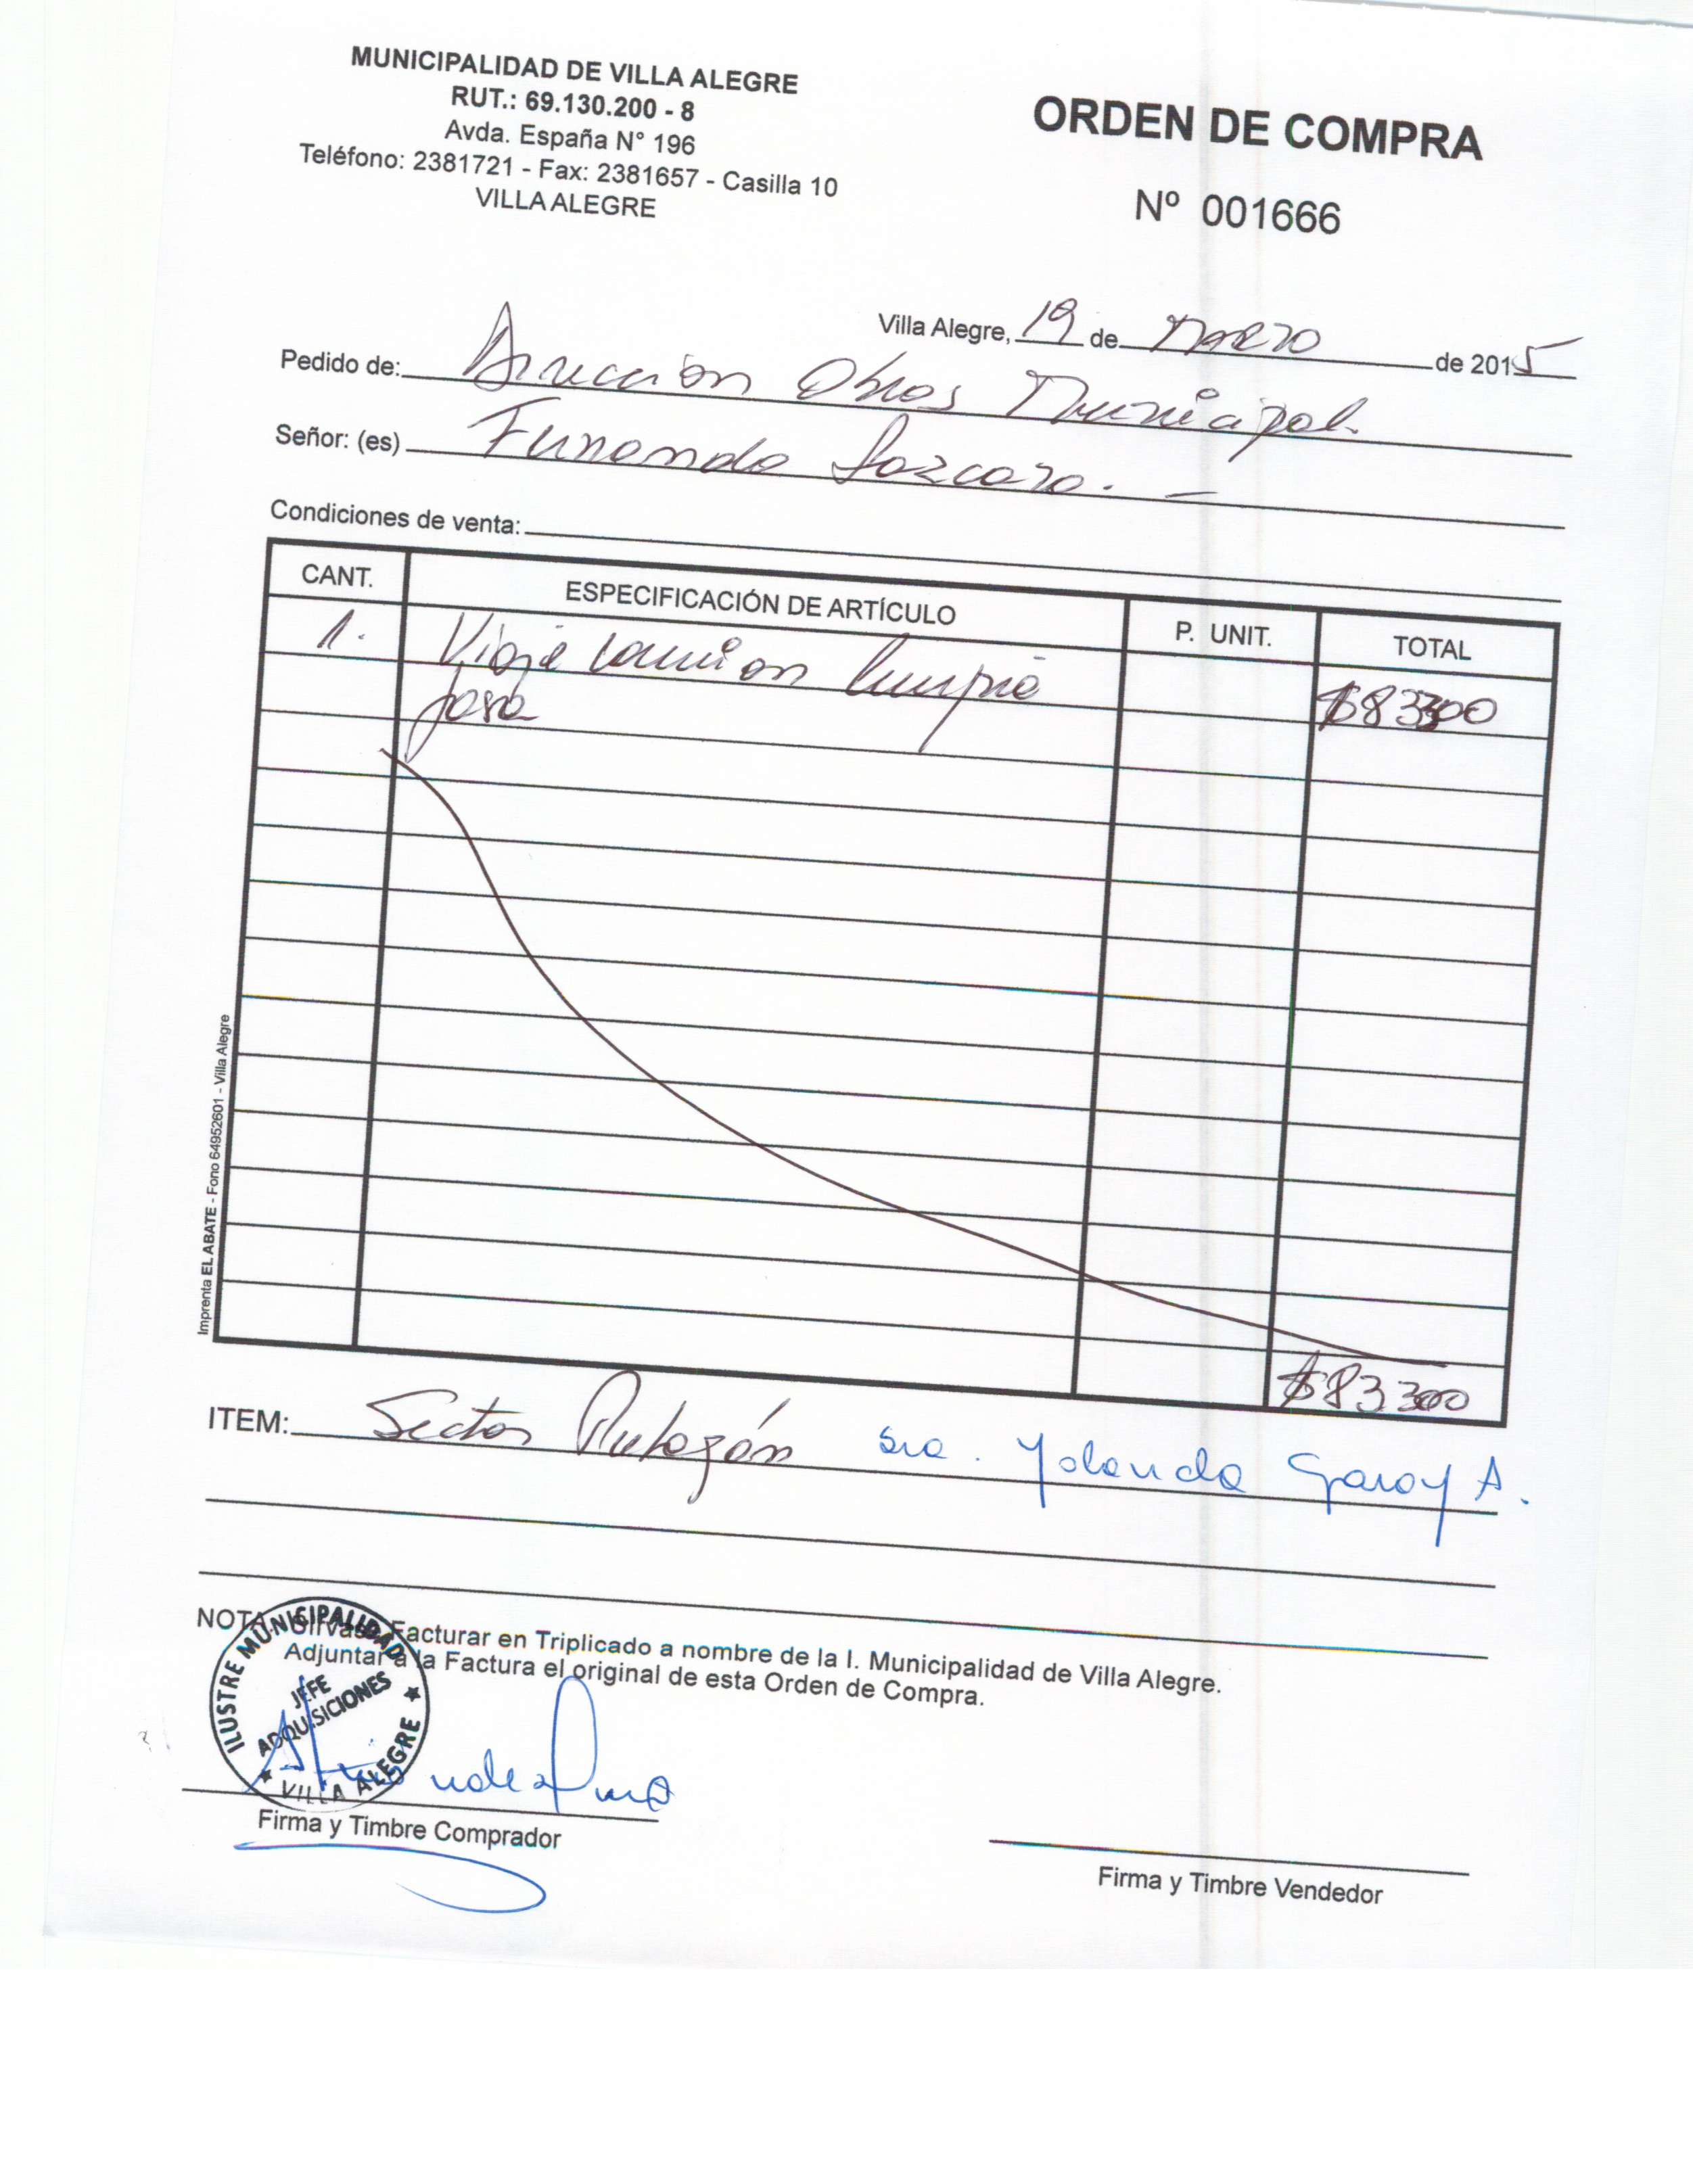 MUNICIPALIDAD DE VILLA ALEGRE
RUT.: 69.130.200 - 8
Avda. España N° 196
Teléfono: 2381721 - Fax: 2381657 - Casilla 10
VILLA ALEGRE
ORDEN DE COMPRA
Nº 001666
Villa Alegre, 19 de Marzo de 2015
Pedido de: Direccion Obras Municipal.
Señor: (es) Fernando
Condiciones de venta:
CANT. ESPECIFICACIÓN DE ARTÍCULO P. UNIT. TOTAL
1. Viaje camion limpia $83300
fosa
$83300
ITEM: Sector Putagán Sra. Yolanda Garay A.
NOTA: Facturar en Triplicado a nombre de la I. Municipalidad de Villa Alegre.
Adjuntar a la Factura el original de esta Orden de Compra.
ILUSTRE MUNICIPALIDAD
JEFE
ADQUISICIONES
VILLA ALEGRE
Firma y Timbre Comprador
Firma y Timbre Vendedor
Imprenta EL ABATE - Fono 64952601 - Villa Alegre